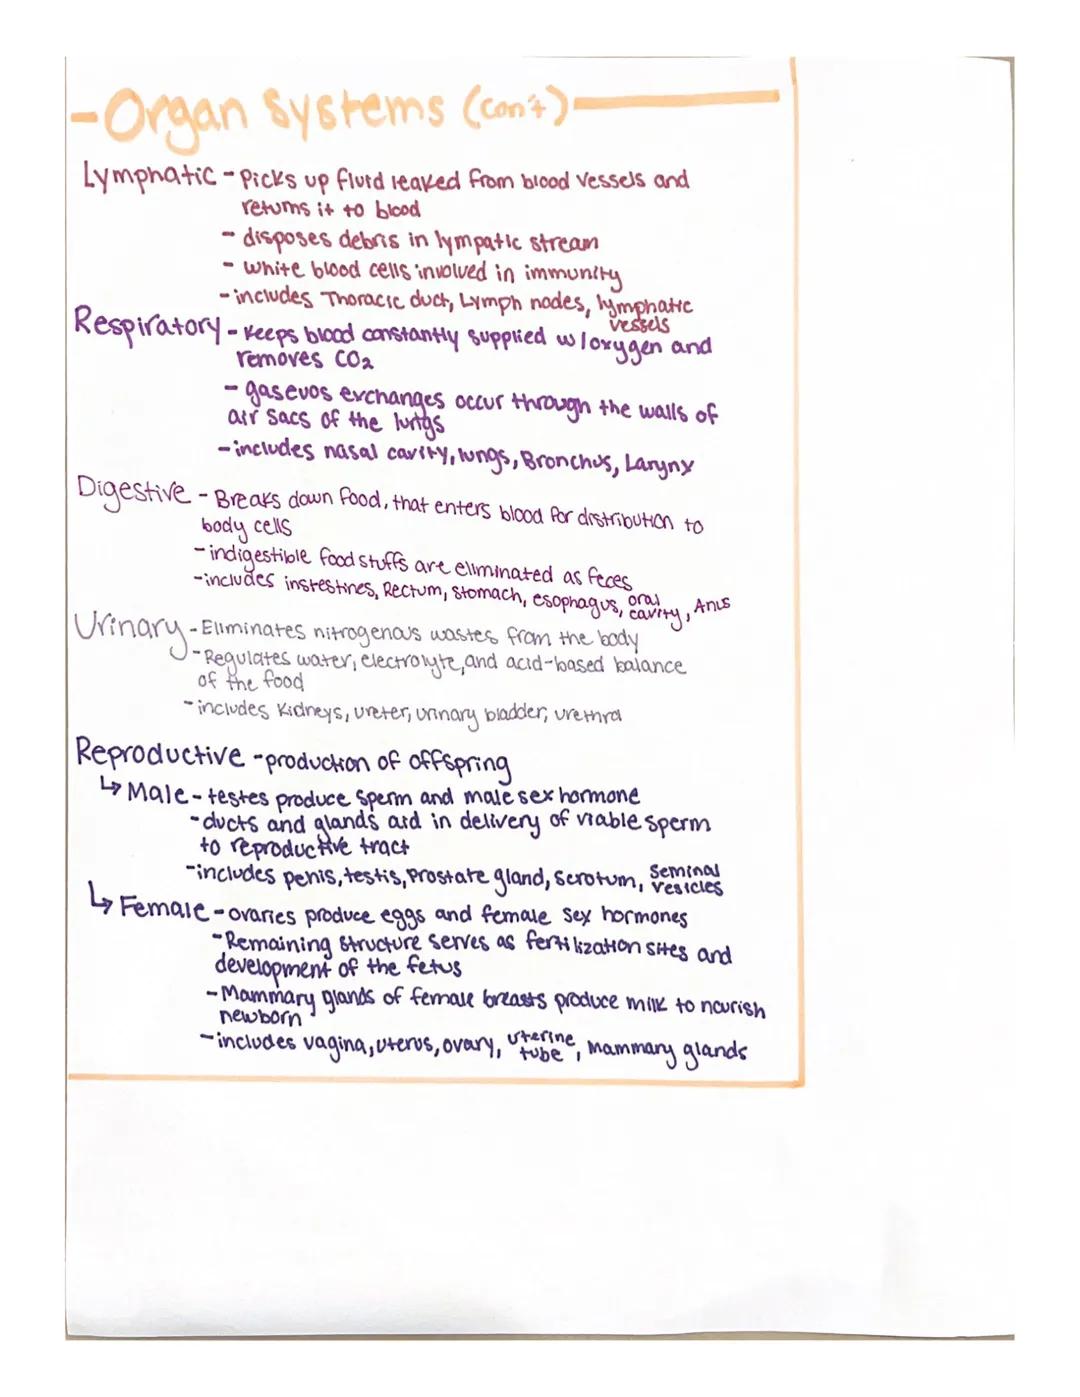 -Organ Systems (con't)-
Lymphatic - Picks up fluid leaked from blood vessels and
returns it to blood
- disposes debris in lympatic stream
- white blood cells involved in immunity
- includes Thoracic duct, Lymph nodes, lymphatic
vessels
Respiratory - Keeps blood constantly supplied w/oxygen and
removes CO2
- gaseuos exchanges occur through the walls of
air sacs of the lungs
- includes nasal cavity, lungs, Bronchus, Larynx
Digestive - Breaks down food, that enters blood for distribution to
body cells
- indigestible food stuffs are eliminated as feces
- includes instestines, Rectum, stomach, esophagus, oral cavity, Anus
Urinary - Eliminates nitrogenous wastes from the body
- Regulates water, electrolyte, and acid-based balance
of the food
- includes Kidneys, ureter, urinary bladder, urethra
Reproductive - production of offspring
↳ Male - testes produce sperm and male sex hormone
- ducts and glands aid in delivery of viable sperm
to reproductive tract
- includes penis, testis, Prostate gland, scrotum, Seminal vesicles
↳ Female - ovaries produce eggs and female sex hormones
- Remaining structure serves as fertilization sites and
development of the fetus
- Mammary glands of female breasts produce milk to nourish
newborn
- includes vagina, uterus, ovary, uterine tube, mammary glands